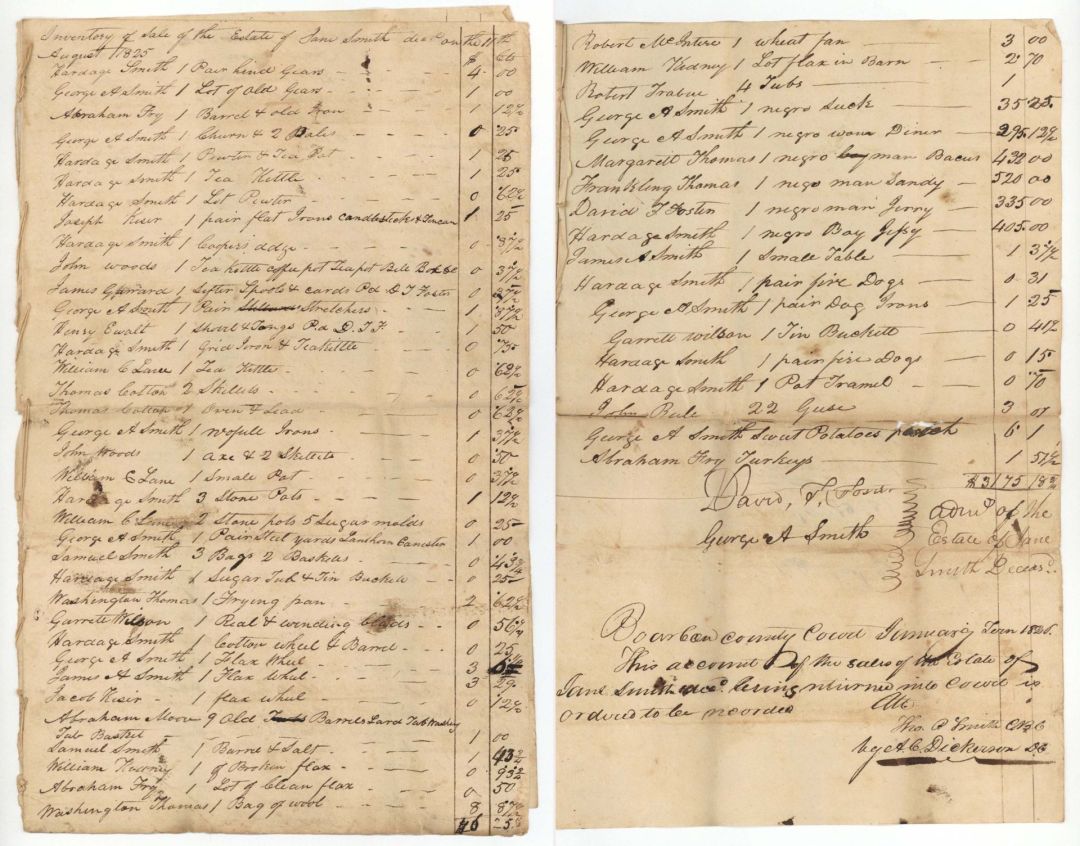 Inventory of Sale of the Estate of Jane Smith decd on the 11th
August 1825 $ Cts
Hardage Smith 1 Pair hind Gears 4 00
George A Smith 1 Lot of Old Gears 1 00
Abraham Fry 1 Barrel & old Iron 1 12½
George A Smith 1 Churn & 2 Pales 0 25
Hardage Smith 1 Pewter & Tea Pot 1 25
Hardage Smith 1 Tea Kettle 1 25
Hardage Smith 1 Lot Pewter 0 62½
Joseph Kiser 1 pair flat Irons candlestick & 1 25
Hardage Smith 1 Coopers adge 0 87½
John Woods 1 Tea Kettle coffee pot Teapot Bell Box &c 0 37½
James Garrard 1 Sifter Spools & cards Pd D T Foster 0 37½
George A Smith 1 Pair Stretchers 1 87½
Henry Ewalt 1 Shovel & Tongs Pd D. T. F. 1 50
Hardage Smith 1 Grid Iron & Teakittle 0 75
William C Lane 1 Tea Kittle 0 62½
Thomas Cotton 2 Skillets 0 62½
Thomas Cotton 1 Oven & Lead 0 62½
George A Smith 1 wofull Irons 1 37½
John Woods 1 Axe & 2 Skillets 0 50
William C Lane 1 Small Pot 0 37½
Hardage Smith 3 Stone Pots 1 12½
William C Lane 2 Stone pots 5 Sugar molds 0 25
George A Smith 1 Pair Steel yards Lanthorn Canester 1 00
Samuel Smith 3 Bags 2 Baskets 0 43¾
Hardage Smith 1 Sugar Tub & Tin Buckett 0 25
Washington Thomas 1 Frying pan 2 62½
Garrett Wilson 1 Real & winding blades 0 56¼
Hardage Smith 1 Cotton wheel & Barrel 0 25
George A Smith 1 Flax Wheel
James A Smith 1 Flax Wheel 3
Jacob Kisir 1 flax wheel 3 29
Abraham Moore 9 Old Barrels Lard Tub Washing 0 12½
Tub Basket 1 00
Samuel Smith 1 Barrel & Salt 1 43¾
William Kidney 1 of Broken flax 0 93¾
Abraham Fry 1 Lot of Clean flax 0 50
Washington Thomas 1 Bag of wool 8 87½
Robert McIntire 1 wheat fan 3 00
William Kidney 1 Lot flax in Barn 2 70
Robert Trabue 4 Tubs 1
George A Smith 1 negro Suck 35 25
George A Smith 1 negro Diner 295 12½
Margarett Thomas 1 negro man Bacus 432 00
Frankling Thomas 1 nego man Sandy 520 00
David T Foster 1 negro man Jerry 335 00
Hardage Smith 1 negro Boy Jeffry 405 00
James A Smith 1 Small Table 1 37½
Hardage Smith 1 pair fire Dogs 0 31
George A Smith 1 pair Dog Irons 1 25
Garrett Wilson 1 Tin Buckett 0 41½
Hardage Smith 1 pair fire Dogs 0 15
Hardage Smith 1 Pot Tramel 0 70
John Rule 22 Guse 3 01
George A Smith Sweet Potatoes patch 6 1
Abraham Fry Turkeys 1 51½
$ 3175 18¾
David, T, Foster
George A Smith
admrs of the
Estate of Jane
Smith Decesd.
Bourbon county Court January Term 1826.
This account of the sales of the Estate of
Jane Smith decd. being returned into Court is
ordered to be recorded Att
Tho. P Smith CBC
by A. C. Dickerson DC